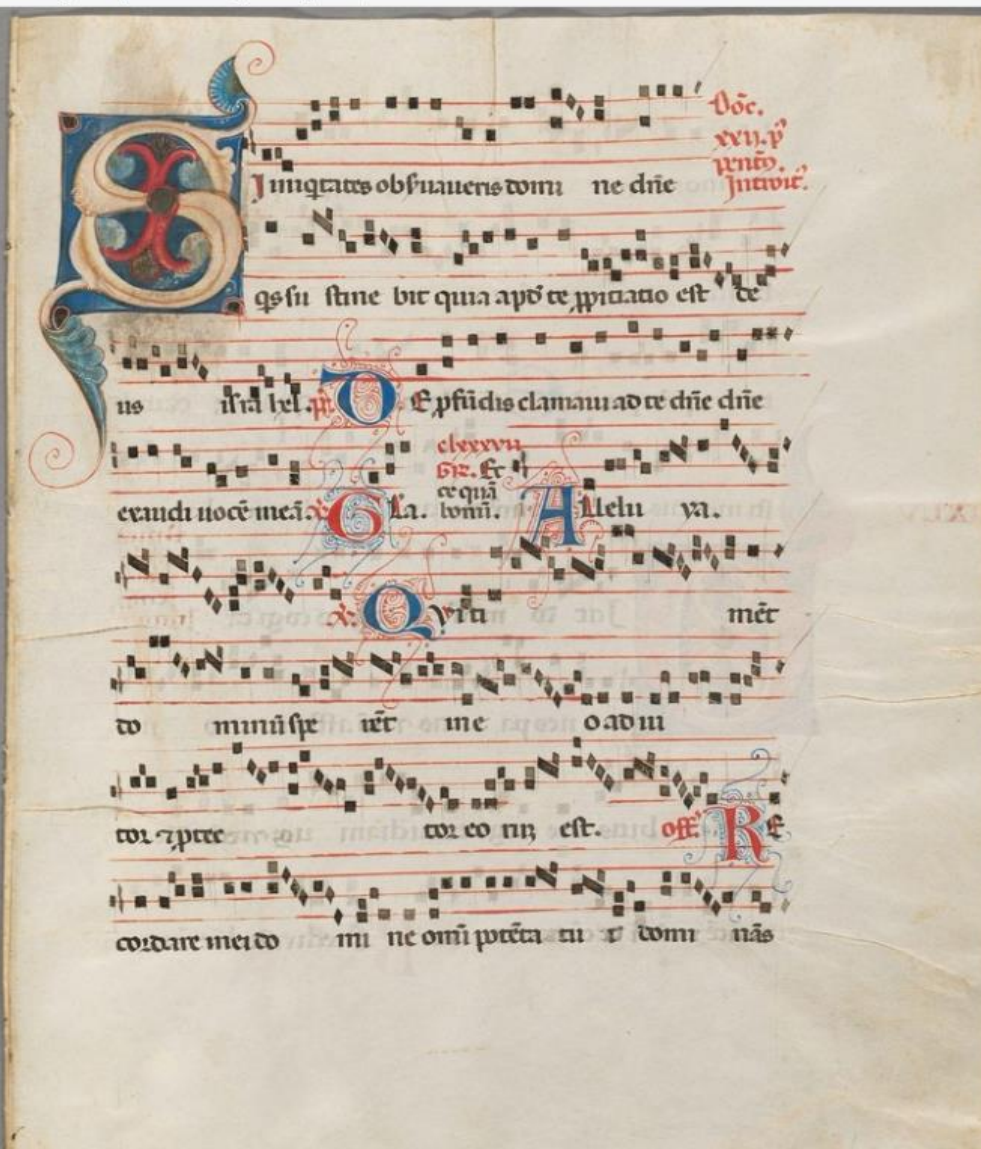 S Dōc.
xxij. p̄
pentꝫ.
Introit̄.
I iniqͥtates obẜuaueris domi ne dn̄e
qͥs su stine bit quia apd̓ te ꝓpitiatio est de
us isra hel. p̄s. DE ꝓfūdis clamaui ad te dn̄e dn̄e
exaudi uocē meā. ℣. Gl̄a. clxxxvii
GR. Ec
ce quā
bonū. Alleluya.
℣. Qui ti mēt
do minū spe rēt in e o adiu
tor ⁊ ꝓtec tor eo rꝝ est. off̄. RE
cordare mei do mi ne omī potēta tu i domi nās